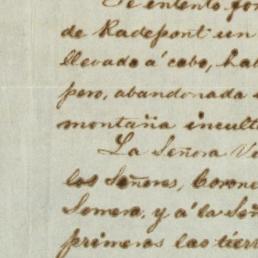 Se intentó for
de Radepont un
llevado á cabo, ha
pero, abandonada
montaña incult
La Señora V
los Señores, Corone
Somera, y á la Señ
primeras las tierr